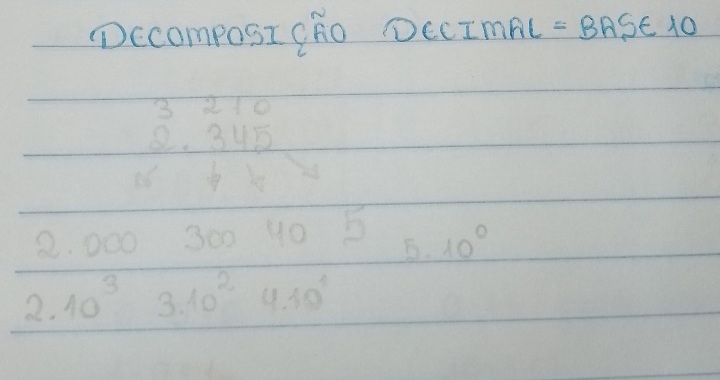 DECOMPOSIÇÃO DECIMAL = BASE 10
3 2 1 0
2.345
2.000 300 40 5 5.10⁰
2.10³ 3.10² 4.10¹